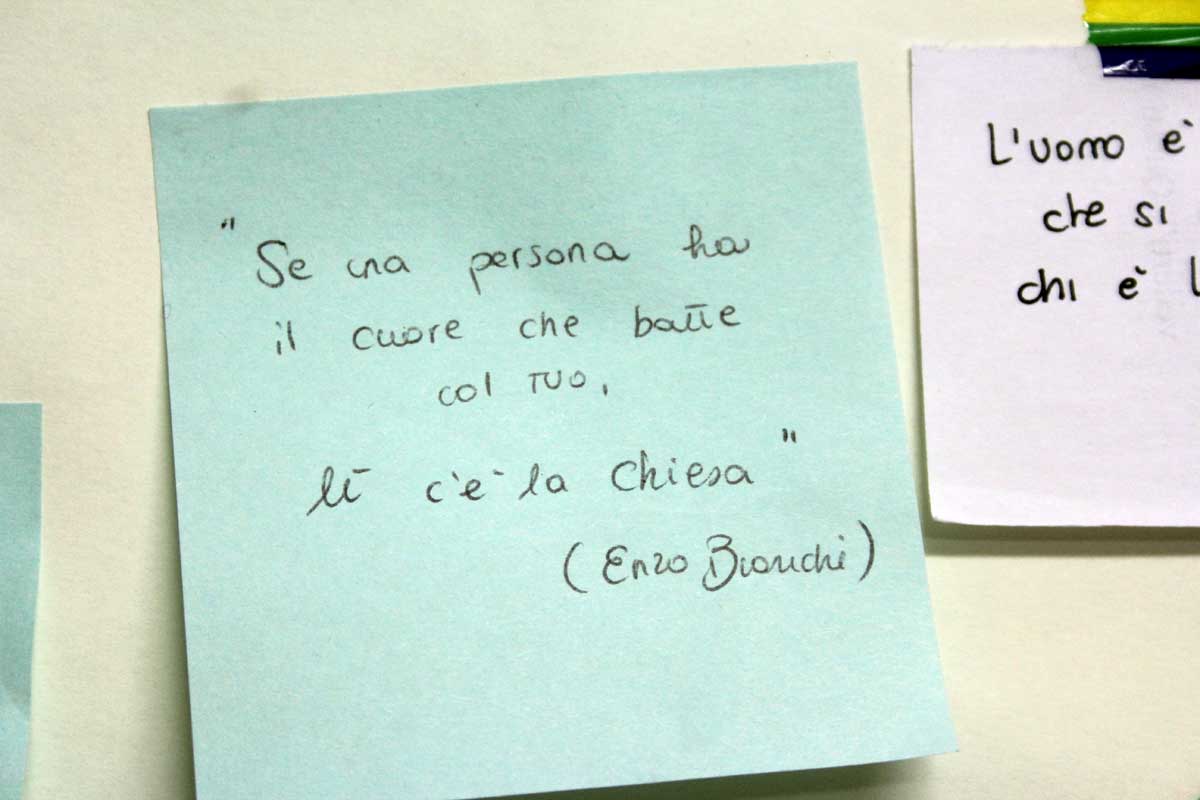 "Se una persona ha
il cuore che batte
col tuo,
lì c'è la Chiesa"
(Enzo Bianchi)
L'uomo è
che si
chi è